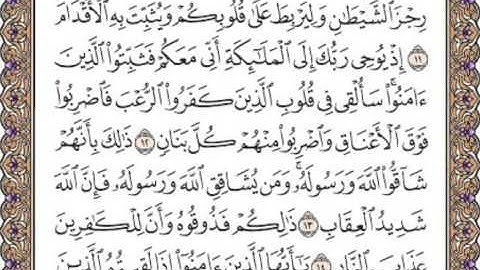 رِجْزَ ٱلشَّيْطَٰنِ وَلِيَرْبِطَ عَلَىٰ قُلُوبِكُمْ وَيُثَبِّتَ بِهِ ٱلْأَقْدَامَ
١١ إِذْ يُوحِى رَبُّكَ إِلَى ٱلْمَلَٰٓئِكَةِ أَنِّى مَعَكُمْ فَثَبِّتُوا۟ ٱلَّذِينَ
ءَامَنُوا۟ سَأُلْقِى فِى قُلُوبِ ٱلَّذِينَ كَفَرُوا۟ ٱلرُّعْبَ فَٱضْرِبُوا۟
فَوْقَ ٱلْأَعْنَاقِ وَٱضْرِبُوا۟ مِنْهُمْ كُلَّ بَنَانٍ ١٢ ذَٰلِكَ بِأَنَّهُمْ
شَآقُّوا۟ ٱللَّهَ وَرَسُولَهُۥ وَمَن يُشَاقِقِ ٱللَّهَ وَرَسُولَهُۥ فَإِنَّ ٱللَّهَ
شَدِيدُ ٱلْعِقَابِ ١٣ ذَٰلِكُمْ فَذُوقُوهُ وَأَنَّ لِلْكَٰفِرِينَ
عَذَابَ ٱلنَّارِ ١٤ يَٰٓأَيُّهَا ٱلَّذِينَ ءَامَنُوٓا۟ إِذَا لَقِيتُمُ ٱلَّذِينَ